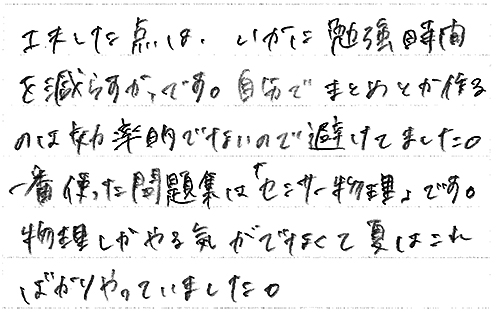 工夫した点は、いかに勉強時間
を減らすか、です。自分でまとめとか作る
のは効率的でないので避けてました。
一番使った問題集は「センサー物理」です。
物理しかやる気がでなくて夏はこれ
ばかりやっていました。